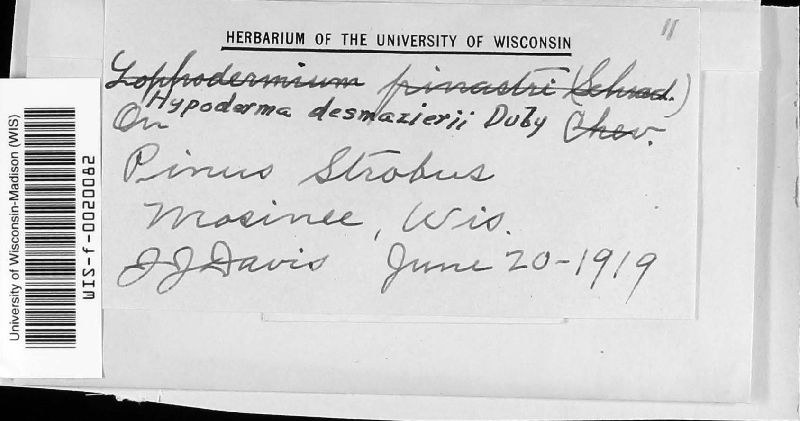 11
HERBARIUM OF THE UNIVERSITY OF WISCONSIN
Lophodermium pinastri (Schrad.)
Hypoderma desmazierii Duby Chev.
On
Pinus Strobus
Mosinee, Wis.
J J Davis June 20-1919
University of Wisconsin-Madison (WIS)
WIS-f-0020082